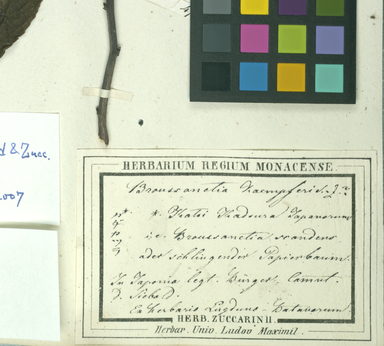 d & Zucc.
2007
HERBARIUM REGIUM MONACENSE.
Broussonetia Kaempferi S. Z.
Katsi Kadsura Japonorum
i. e. Broussonetia scandens
oder schlingender Papierbaum.
In Japonia legt. Bürger, comut.
D. Siebold.
Ex herbario Lugduno-Batavorum
HERB. ZUCCARINII.
Herbar. Univ. Ludov Maximil.